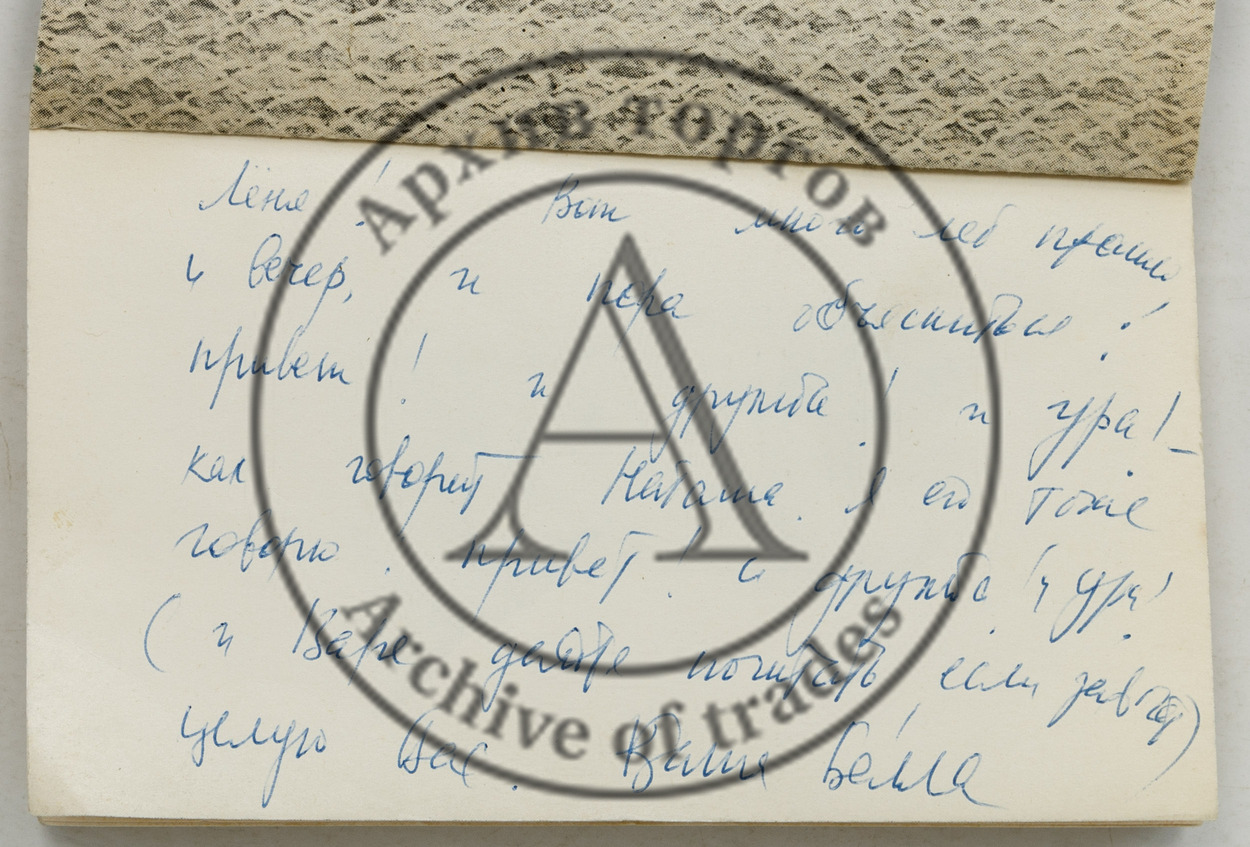 Лёня! Вот много лет прошло
и вечер, и пора объясниться!
привет! и дружба! и ура! –
как говорит Наташа. Я его тоже
говорю: привет! и дружба! и ура!
(и Варе дайте почитать если)
целую Вас. Ваша Белла
Архив торгов
Archive of trades
А